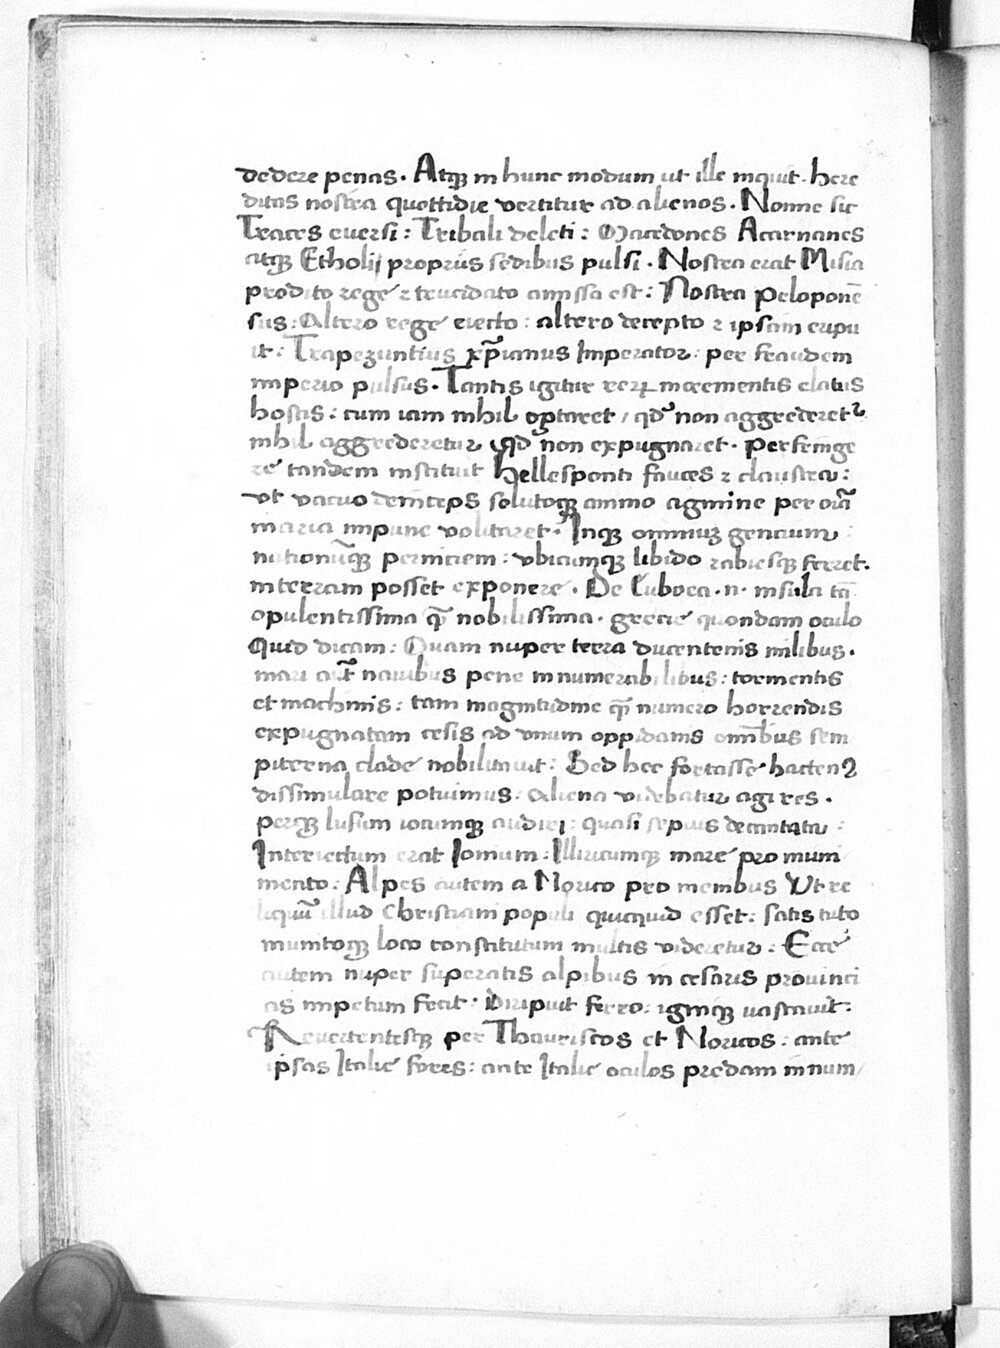 dedere penas. Atqꝫ in hunc modum ut ille inquit. here
ditas nostra quottidie vertitur ad alienos. Nonne sic
Traces eversi: Tribali deleti: Macedones Acarnanes
atqꝫ Etholij propriis sedibus pulsi. Nostra erat Misia
prodito rege ⁊ trucidato amissa est: Nostra Peloponē
sus: Altero rege eiecto: altero decepto ⁊ ipsam eripu
it: Trapezuntius xp̄ianus Imperator: per fraudem
imperio pulsus. Tantis igitur reꝝ incrementis elatus
hostis: cum iam nihil optaret / qd' non aggrederetᷣ
nihil aggrederetur qd' non expugnaret. Perfringe
re tandem instituit hellesponti fauces ⁊ claustra:
vt vacuo deinceps solutoqꝫ animo agmine per oīa
maria impune volitaret. Inqꝫ omniuꝫ gentium
nationūqꝫ perniciem: vbicumqꝫ libido rabiesqꝫ ferret.
in terram posset exponere. De Euboea .n. insula tā
opulentissima q̄ nobilissima. grecie quondam oculo
Quid dicam: Quam nuper terra ducentenis milibus.
mari aūt navibus pene innumerabilibus: tormentis
et machinis: tam magnitudine q̄ numero horrendis
expugnatam cesis ad vnum oppidanis omībus sem
piterna clade nobilitavit: Sed hec fortasse hactenꝰ
dissimulare potuimus: Aliena videbatur agi res.
perqꝫ lusum iocumqꝫ audiri: quasi sepius decantata:
Interiectum erat Ionium: Illiricumqꝫ mare pro muni
mento: Alpes autem a Norico pro menibus Vt re
liquū illud Christiani populi quicquid esset: satis tuto
munitoqꝫ loco constitutum multis videretur: Ecce
autem nuper superatis alpibus in cesaris provinci
as impetum fecit. Diripuit ferro: igniqꝫ vastavit:
Revertentesqꝫ per Thauriscos et Noricos: ante
ipsas Italie fores: ante Italie oculos predam innum/